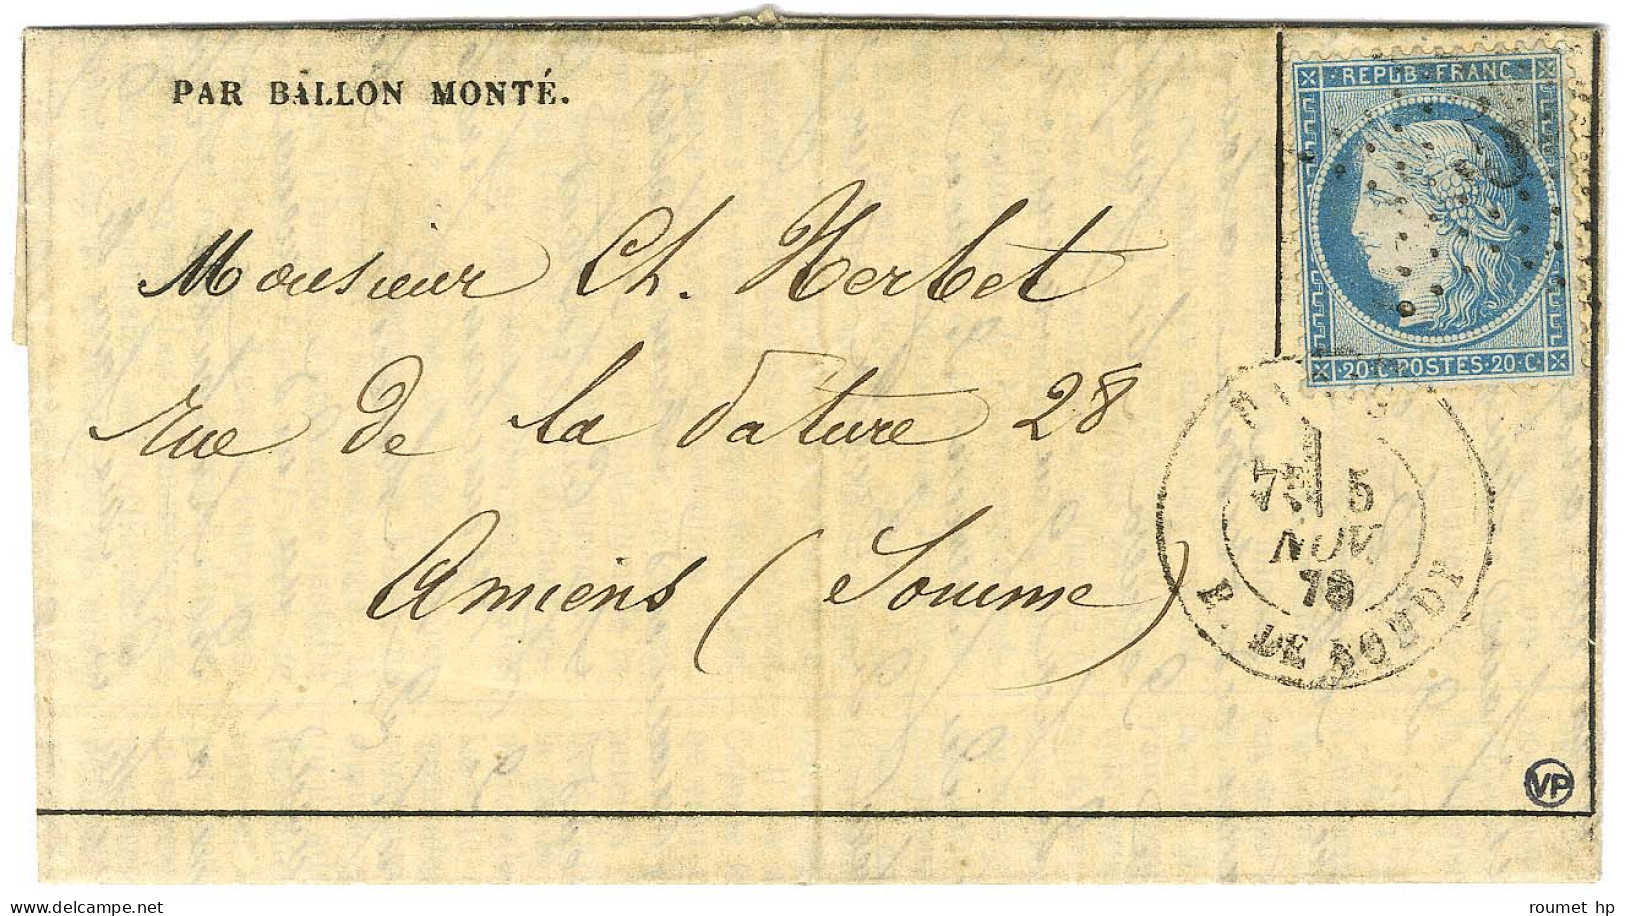 PAR BALLON MONTÉ.
REPUB · FRANC
20 C · POSTES · 20 · C
Monsieur Ch. Herbet
rue de la Dature 28
Amiens (Somme)
5
NOV.
70
R. DE BONDY
VP
roumet hp